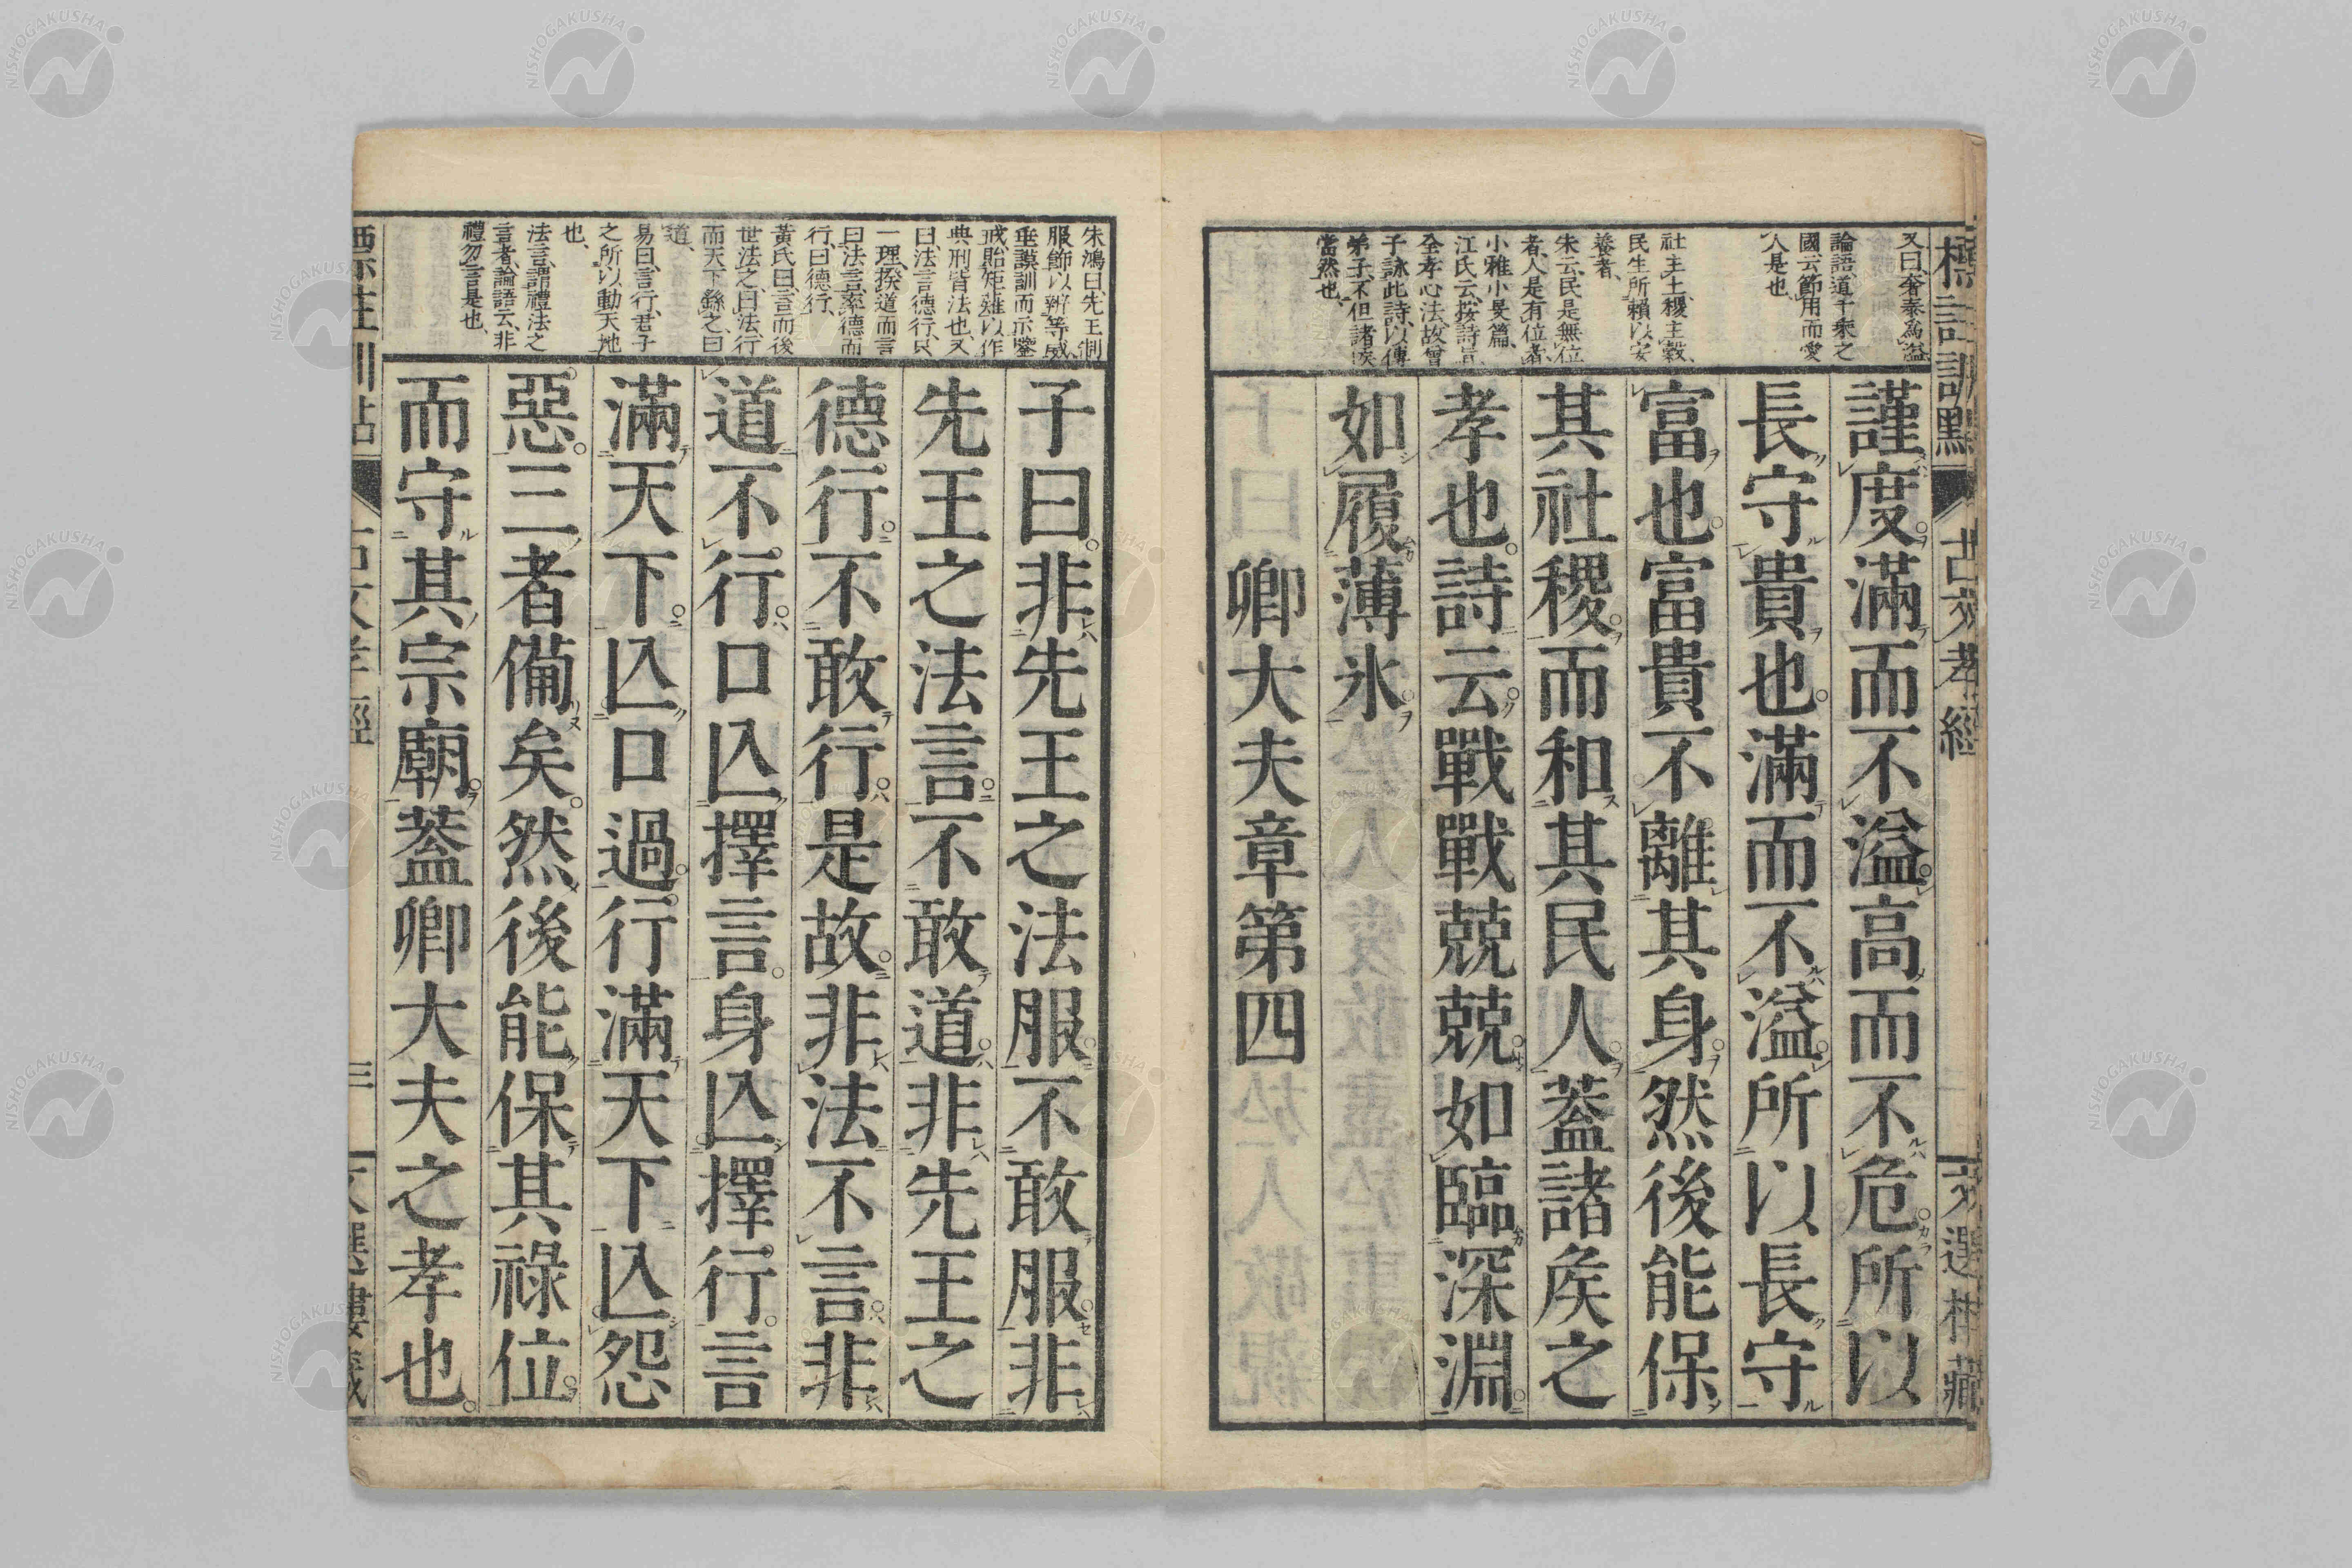 又曰奢泰爲溢
論語道千乘之
國云節用而愛
人是也
社主土稷主穀
民生所賴以安
養者
朱云民是無位
者人是有位者
小雅小旻篇
江氏云按詩旨
全孝心法故曾
子詠此詩以傳
弟子不但諸矦
當然也
謹度滿而不溢高而不危所以
長守貴也滿而不溢所以長守
富也富貴不離其身然後能保
其社稷而和其民人葢諸矦之
孝也詩云戰戰兢兢如臨深淵
如履薄氷
卿大夫章第四
古文孝經
朱鴻曰先王制
服飾以辨等威
垂謨訓而示鑒
戒貽矩薙以作
典刑皆法也又
曰法言德行只
一理揆道而言
曰法言素德而
行曰德行
黃氏曰言而後
世法之曰法行
而天下繇之曰
道
易曰言行君子
之所以動天地
也
法言謂禮法之
言者論語云非
禮勿言是也
子曰非先王之法服不敢服非
先王之法言不敢道非先王之
德行不敢行是故非法不言非
道不行口亾擇言身亾擇行言
滿天下亾口過行滿天下亾怨
惡三者備矣然後能保其祿位
而守其宗廟葢卿大夫之孝也
三
NISHOGAKUSHA